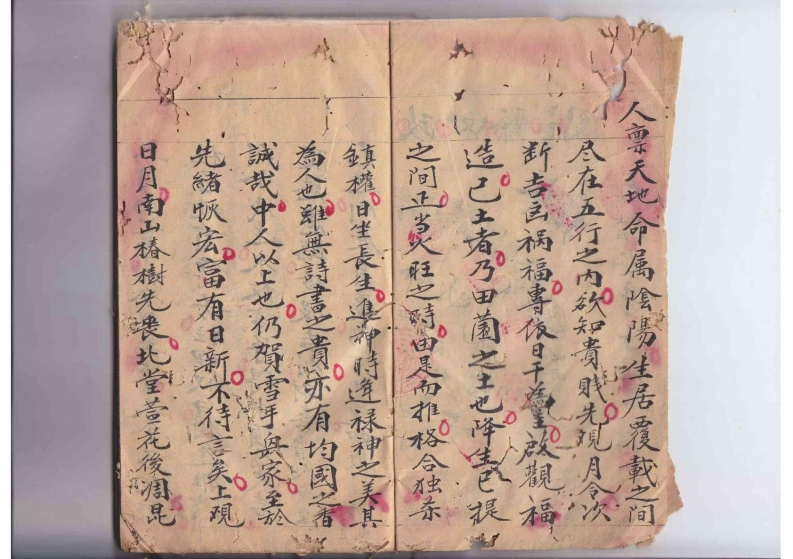 人禀天地命属陰陽生居覆載之间
尽在五行之内欲知貴贱先观月令次
断吉凶祸福專依日干為主啟觀福
造己土者乃田園之土也降生巳提
之间正当火旺之時由是而推格合独
鎮權日坐長生進神時逢禄神之美其
為人也雖無詩書之貴亦有均國之香
誠哉中人以上也仍賀雪手與家至於
先緒恢宏富有日新不待言矣上观
日月南山椿樹先喪北堂萱花後凋昆